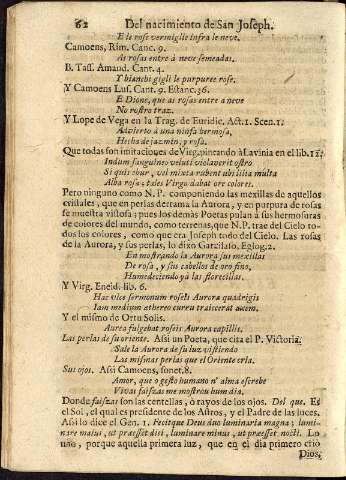 62 Del nacimiento de San Joseph.
E le rose vermiglie infra le neve.
Camoens, Rim. Canc. 9.
As rosas entre à neve semeadas.
B. Tass. Amaud. Cant. 4.
Y bianchi gigli le purpuree rose.
Y Camoens Lus. Cant. 9. Estanc. 36.
E Dione, que as rosas entre a neve
No rostro traz.
Y Lope de Vega en la Trag. de Euridic. Act. 1. Scen. 1.
Advierto à una ninfa hermosa,
Hecha de jazmin, y rosa.
Que todas son imitaciones de Virg. pineando à Lavinia en el lib. 12.
Indum sanguineo veluti violaverit ostro
Si quis ebur, vel mixta rubent ubi lilia multa
Alba rosa; tales Virgo dabat ore colores.
Pero ninguno como N. P. componiendo las mexillas de aquellos
cristales, que en perlas derrama la Aurora, y en purpura de rosas
se muestra vistosa; pues los demàs Poetas pulan à sus hermosuras
de colores del mundo, como terrenas, que N. P. trae del Cielo to-
dos los colores, como que era Joseph todo del Cielo. Las rosas
de la Aurora, y sus perlas, lo dixo Garzilaso, Eglog. 2.
En mostrando la Aurora sus mexillas
De rosa, y sus cabellos de oro fino,
Humedeciendo yà las florecillas.
Y Virg. Eneid. lib. 6.
Hac vice sermonum roseis Aurora quadrigis
Iam medium æthereo cursu traiecerat axem.
Y el mismo de Ortu Solis.
Aurea fulgebat roseis Aurora capillis.
Las perlas de su oriente. Assi un Poeta, que cita el P. Victoria.
Sale la Aurora de su luz vistiendo
Las mismas perlas que el Oriente cria.
Sus ojos. Assi Camoens, sonet. 8.
Amor, que o gesto humano n' alma escrebe
Vivas faiscas me mostrou hum dia.
Donde faiscas son las centellas, ò rayos de los ojos. Del que. Es
el Sol, el qual es presidente de los Astros, y el Padre de las luces.
Assi lo dice el Gen. 1. Fecitque Deus duo luminaria magna; lumi-
nare maius, ut praesset diei, luminare minus, ut praesset nocti. Lo
uno, porque aquella primera luz, que en el dia primero criò
Dios,